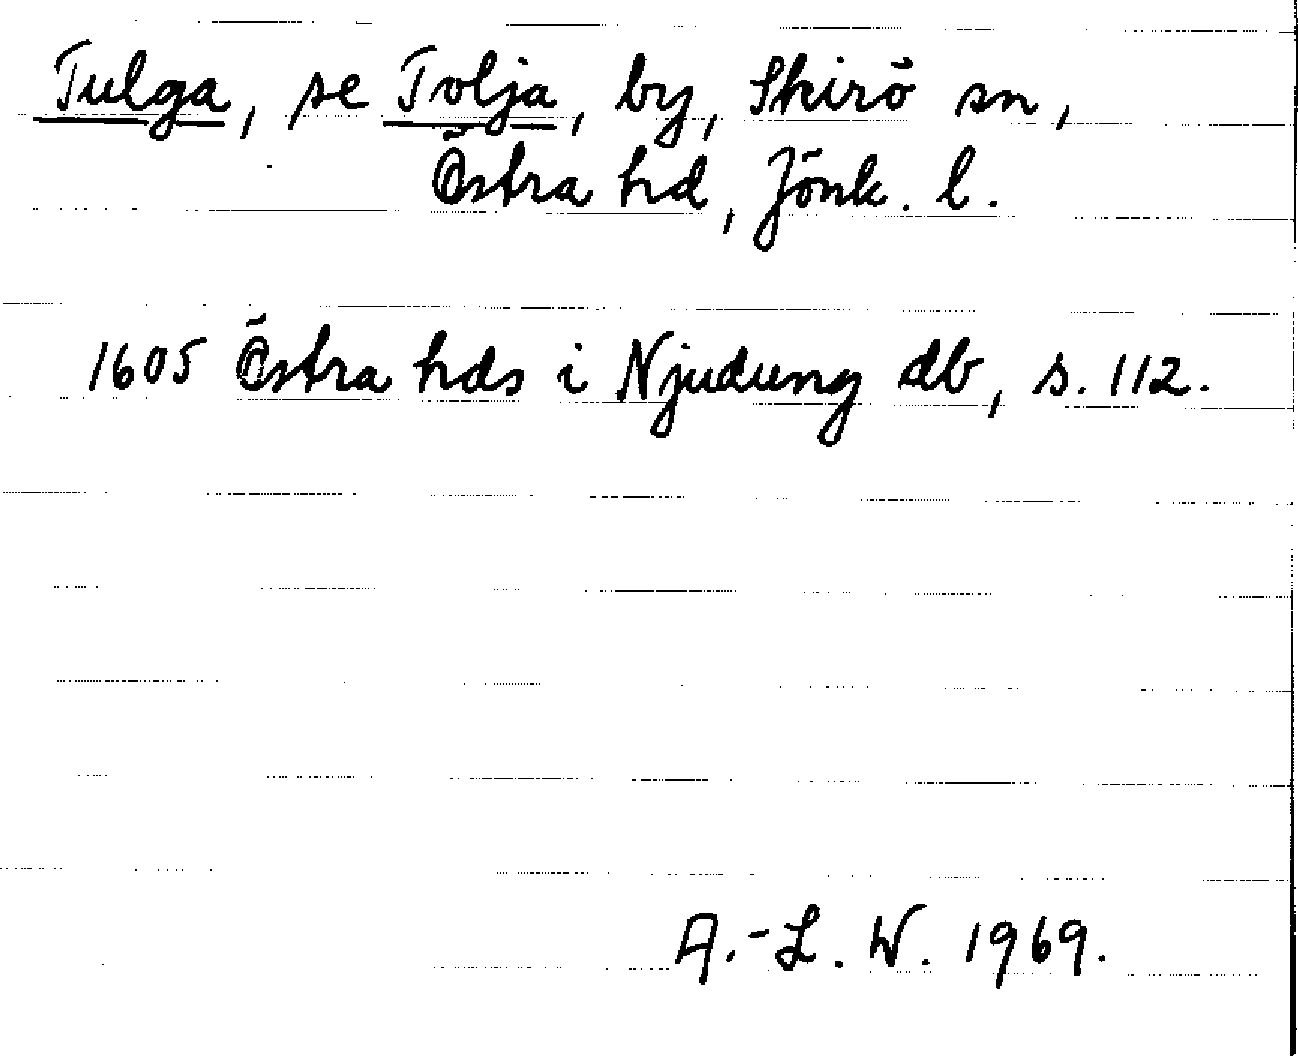 Tulga, se Tolja, by, Skirö sn,
Östra hd, Jönk. l.
1605 Östra hds i Njudung db, s. 112.
A.-L. W. 1969.